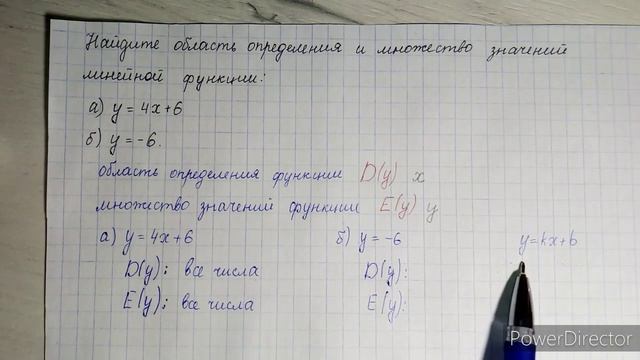 Найдите область определения и множество значений
линейной функции:
а) y = 4x+6
б) y = -6.
область определения функции D(y) x
множество значений функции E(y) y
а) y = 4x+6 б) y = -6 y=kx+b
D(y): все числа D(y):
E(y): все числа E(y):
PowerDirector